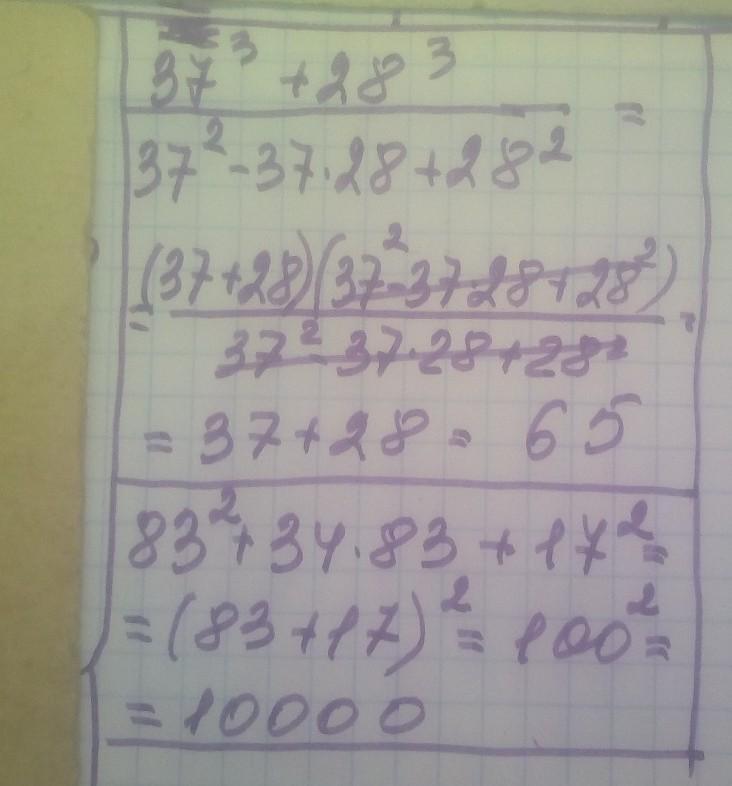 37³ + 28³
=
37² - 37·28 + 28²
(37+28)(37² - 37·28 + 28²)
=
37² - 37·28 + 28²
= 37 + 28 = 65
83² + 34·83 + 17² =
= (83 + 17)² = 100² =
= 10000